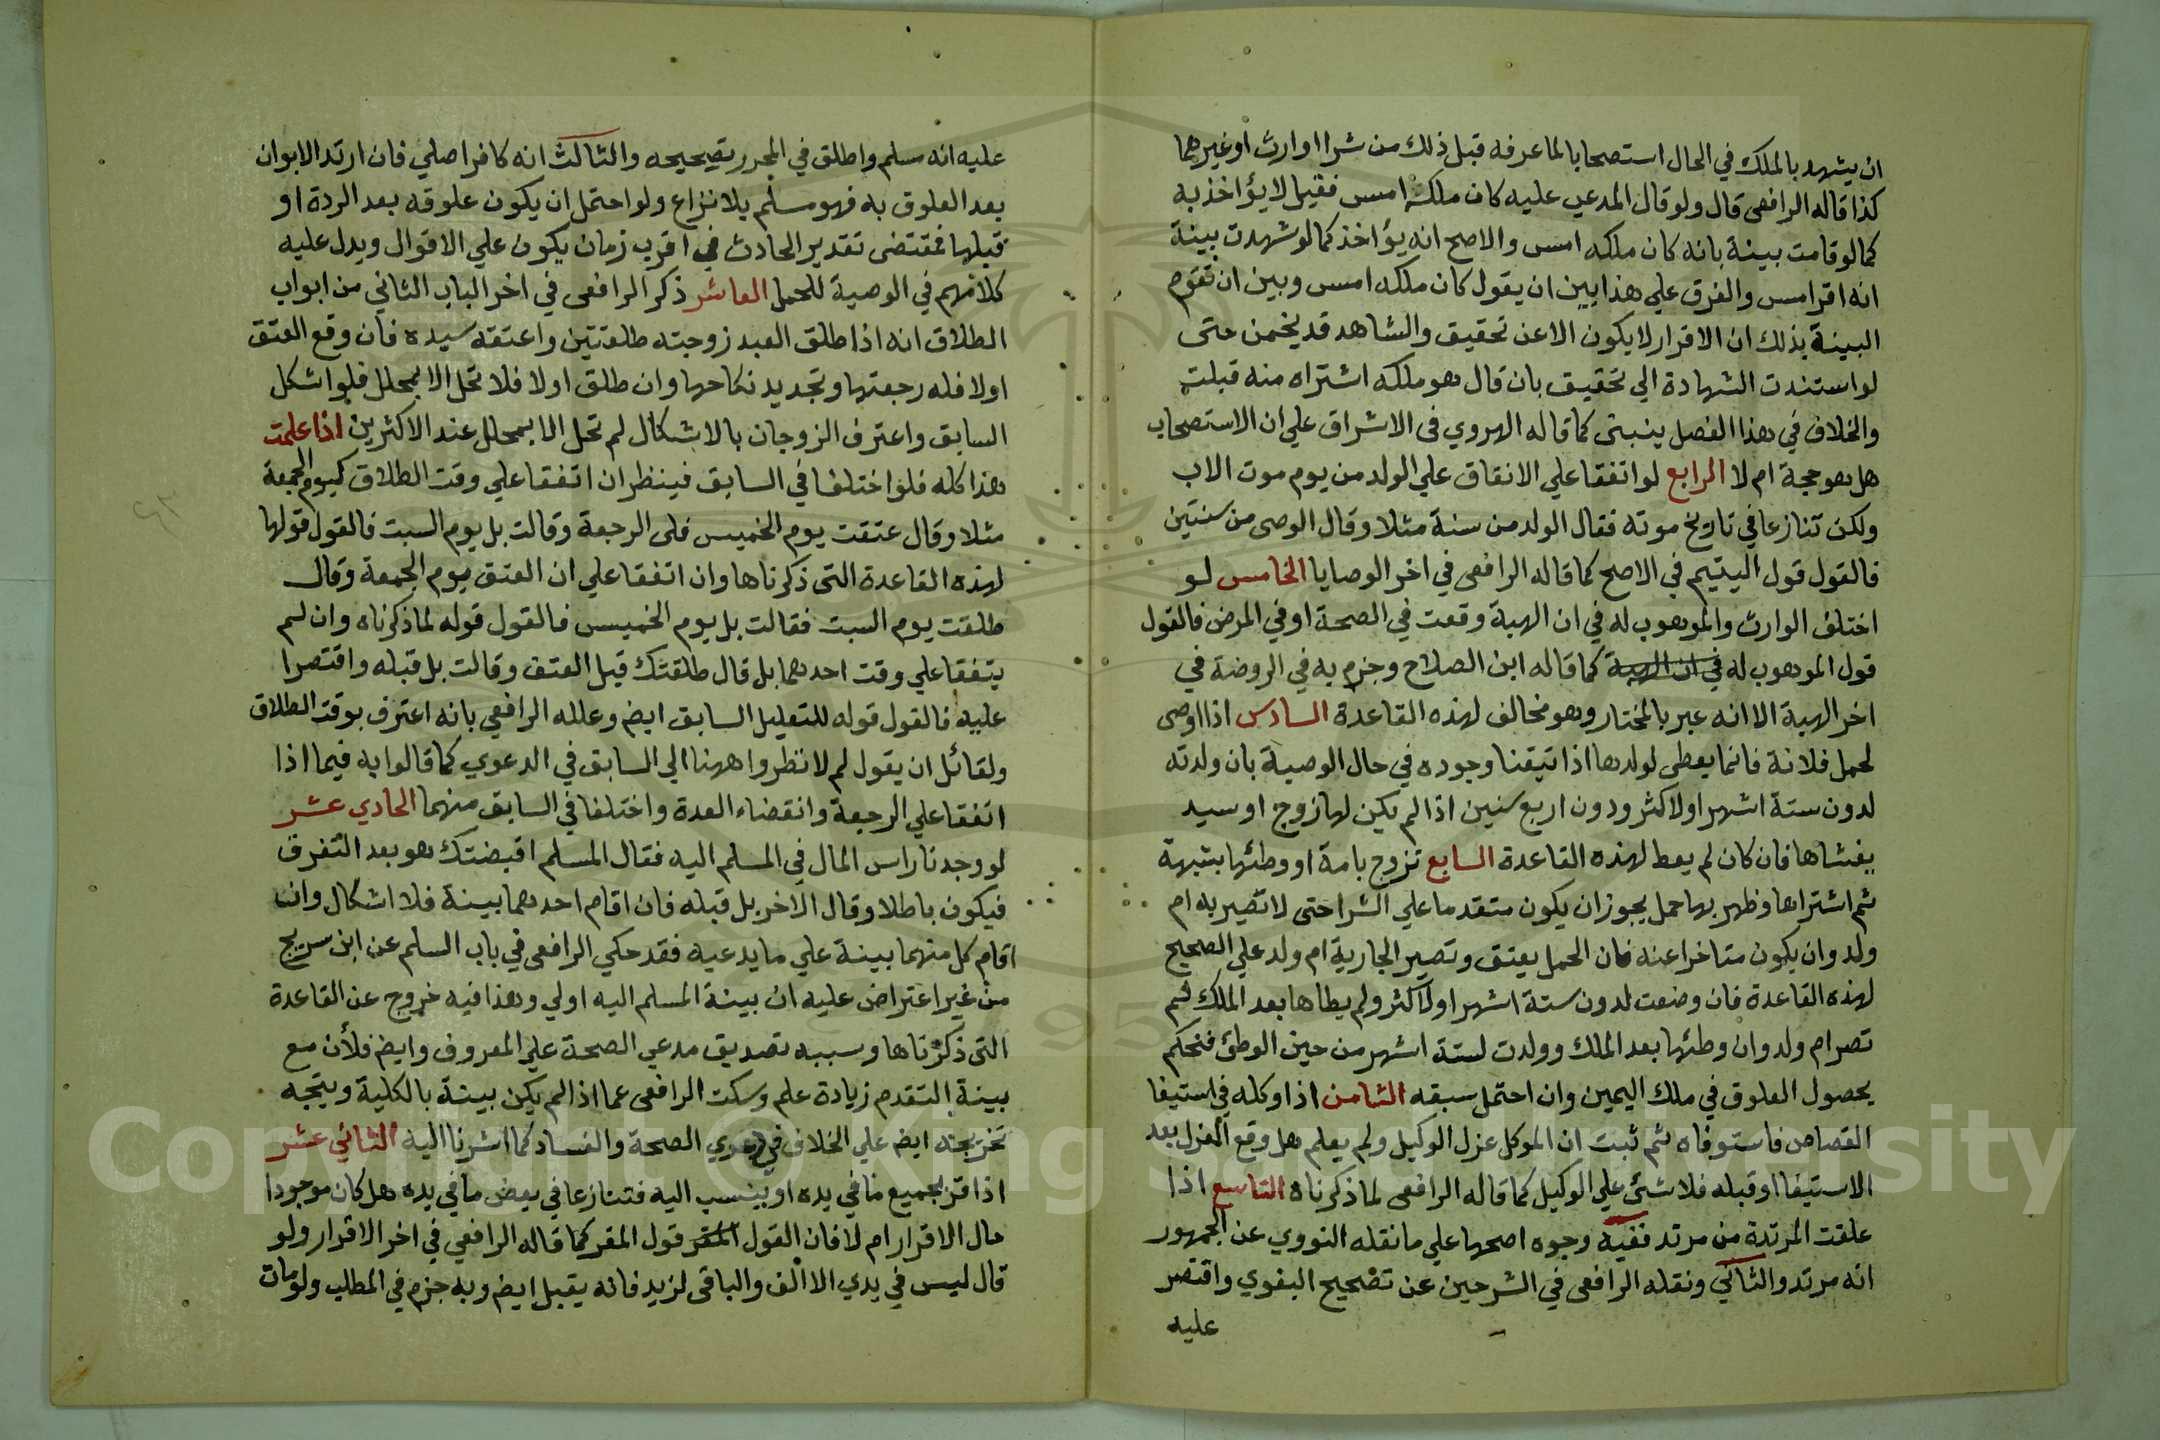 ان يشهد بالملك في الحال استصحابا لما عرفه قبل ذلك من شرا او ارث او غيرهما
كذا قاله الرافعى قال ولو قال المدعي عليه كان ملكه امس فقيل لا يؤاخذ به
كما لو قامت بينة بانه كان ملكه امس والاصح انه يؤاخذ كما لو شهدت بينة
انه اقر امس والفرق علي هذا بين ان يقول كان ملكه امس وبين ان تقوم
البينة بذلك ان الاقرار لا يكون الا عن تحقيق والشاهد قد يخمن حتى
لو استندت الشهادة الي تحقيق بان قال هو ملكه اشتراه منه قبلت
والخلاف في هذا الفصل ينبنى كما قاله الهروي في الاشراق علي ان الاستصحاب
هل هو حجة ام لا الرابع لو اتفقا علي الانفاق علي الولد من يوم موت الاب
ولكن تنازعا في تاريخ موته فقال الولد من سنة مثلا وقال الوصى من سنتين
فالقول قول اليتيم في الاصح كما قاله الرافعى في اخر الوصايا الخامس لو
اختلف الوارث والموهوب له في ان الهبة وقعت في الصحة او في المرض فالقول
قول الموهوب له في ان الهبة كما قاله ابن الصلاح وجزم به في الروضة في
اخر الهبة الا انه عبر بالمختار وهو مخالف لهذه القاعدة السادس اذا اوصى
لحمل فلانة فانما يعطى لولدها اذا تيقنا وجوده في حال الوصية بان ولدته
لدون ستة اشهر او لاكثر ودون اربع سنين اذا لم يكن لها زوج او سيد
يغشاها فان كان لم يعط لهذه القاعدة السابع تزوج بامة او وطئها بشبهة
ثم اشتراها وظهر بها حمل يجوز ان يكون متقدما علي الشرا حتى لا تصير به ام
ولد وان يكون متاخرا عنه فان الحمل يعتق وتصير الجارية ام ولد علي الصحيح
لهذه القاعدة فان وضعت لدون ستة اشهر او لاكثر ولم يطاها بعد الملك لم
تصر ام ولد وان وطئها بعد الملك وولدت لستة اشهر من حين الوطئ فنحكم
بحصول العلوق في ملك اليمين وان احتمل سبقه الثامن اذا وكله في استيفا
القصاص فاستوفاه ثم ثبت ان الموكل عزل الوكيل ولم يعلم هل وقع العزل بعد
الاستيفا او قبله فلا شئ علي الوكيل كما قاله الرافعى لما ذكرناه التاسع اذا
علقت المرتدة من مرتد ففيه وجوه اصحها علي ما نقله النووي عن الجمهور
انه مرتد والثاني ونقله الرافعى في الشرحين عن تصحيح البغوي واقتصر
عليه
عليه انه مسلم واطلق في المحرر تصحيحه والثالث انه كافر اصلي فان ارتد الابوان
بعد العلوق به فهو مسلم بلا نزاع ولو احتمل ان يكون علوقه بعد الردة او
قبلها فمقتضى تقدير الحادث في اقرب زمان يكون علي الاقوال ويدل عليه
كلامهم في الوصية للحمل العاشر ذكر الرافعى في اخر الباب الثاني من ابواب
الطلاق انه اذا طلق العبد زوجته طلقتين واعتقه سيده فان وقع العتق
اولا فله رجعتها وتجديد نكاحها وان طلق اولا فلا تحل الا بمحلل فلو اشكل
السابق واعترف الزوجان بالاشكال لم تحل الا بمحلل عند الاكثرين اذا علمت
هذا كله فلو اختلفا في السابق فينظر ان اتفقا علي وقت الطلاق كيوم الجمعة
مثلا وقال عتقت يوم الخميس فلى الرجعة وقالت بل يوم السبت فالقول قولها
لهذه القاعدة التى ذكرناها وان اتفقا علي ان العتق يوم الجمعة وقال
طلقت يوم السبت فقالت بل يوم الخميس فالقول قوله لما ذكرناه وان لم
يتفقا علي وقت احدهما بل قال طلقتك قبل العتق وقالت بل قبله واقتصرا
عليه فالقول قوله للتعليل السابق ايض وعلله الرافعي بانه اعترف بوقت الطلاق
ولقائل ان يقول لم لا نظروا ههنا الي السابق في الدعوي كما قالوا به فيما اذا
اتفقا علي الرجعة وانقضاء العدة واختلفا في السابق منهما الحادي عشر
لو وجدنا راس المال في المسلم اليه فقال المسلم اقبضتك هو بعد التفرق
فيكون باطلا وقال الاخر بل قبله فان اقام احدهما بينة فلا اشكال وان
اقام كل منهما بينة علي ما يدعيه فقد حكي الرافعى في باب السلم عن ابن سريج
من غير اعتراض عليه ان بينة المسلم اليه اولي وهذا فيه خروج عن القاعدة
التى ذكرناها وسببه تصديق مدعي الصحة علي المعروف وايض فلأن مع
بينة التقدم زيادة علم وسكت الرافعى عما اذا لم يكن بينة بالكلية ويتجه
تخريجه ايض علي الخلاف في دعوي الصحة والفساد كما اشرنا اليه الثاني عشر
اذا اقر بجميع ما في يده او ينسب اليه فتنازعا في بعض ما في يده هل كان موجودا
حال الاقرار ام لا فان القول المقر قول المقر كما قاله الرافعي في اخر الاقرار ولو
قال ليس في يدي الا الف والباقى لزيد فانه يقبل ايض وبه جزم في المطلب ولو مات
٤٣
Copyright © King Saud University